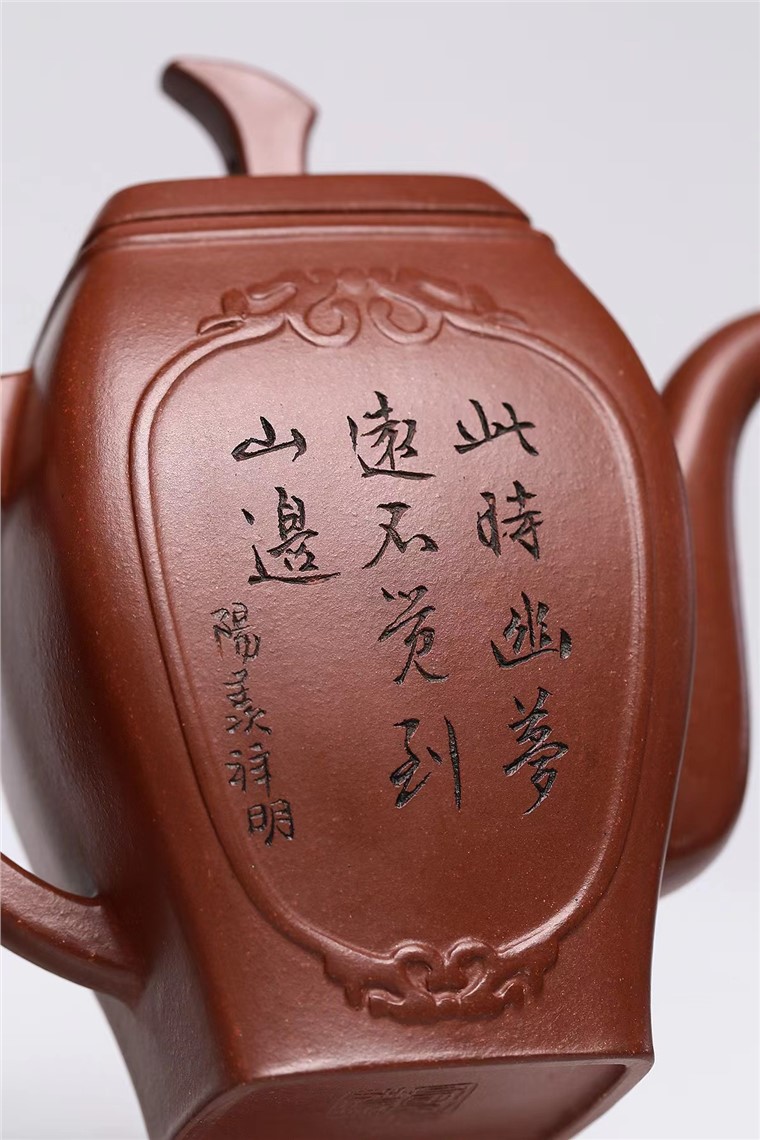 此時幽夢
遠不覺到
山邊
陽羨祥明